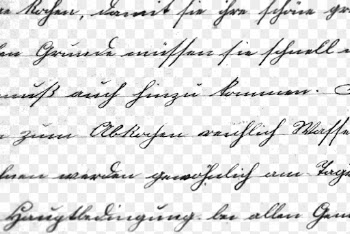 Kochen, damit sie ihre schöne gr
en Grunde müssen sie schnell
muß auch hinzu kommen.
zum Abkochen reichlich Wasse
werden gewöhnlich am Tage
Hauptbedingung bei allen Gem